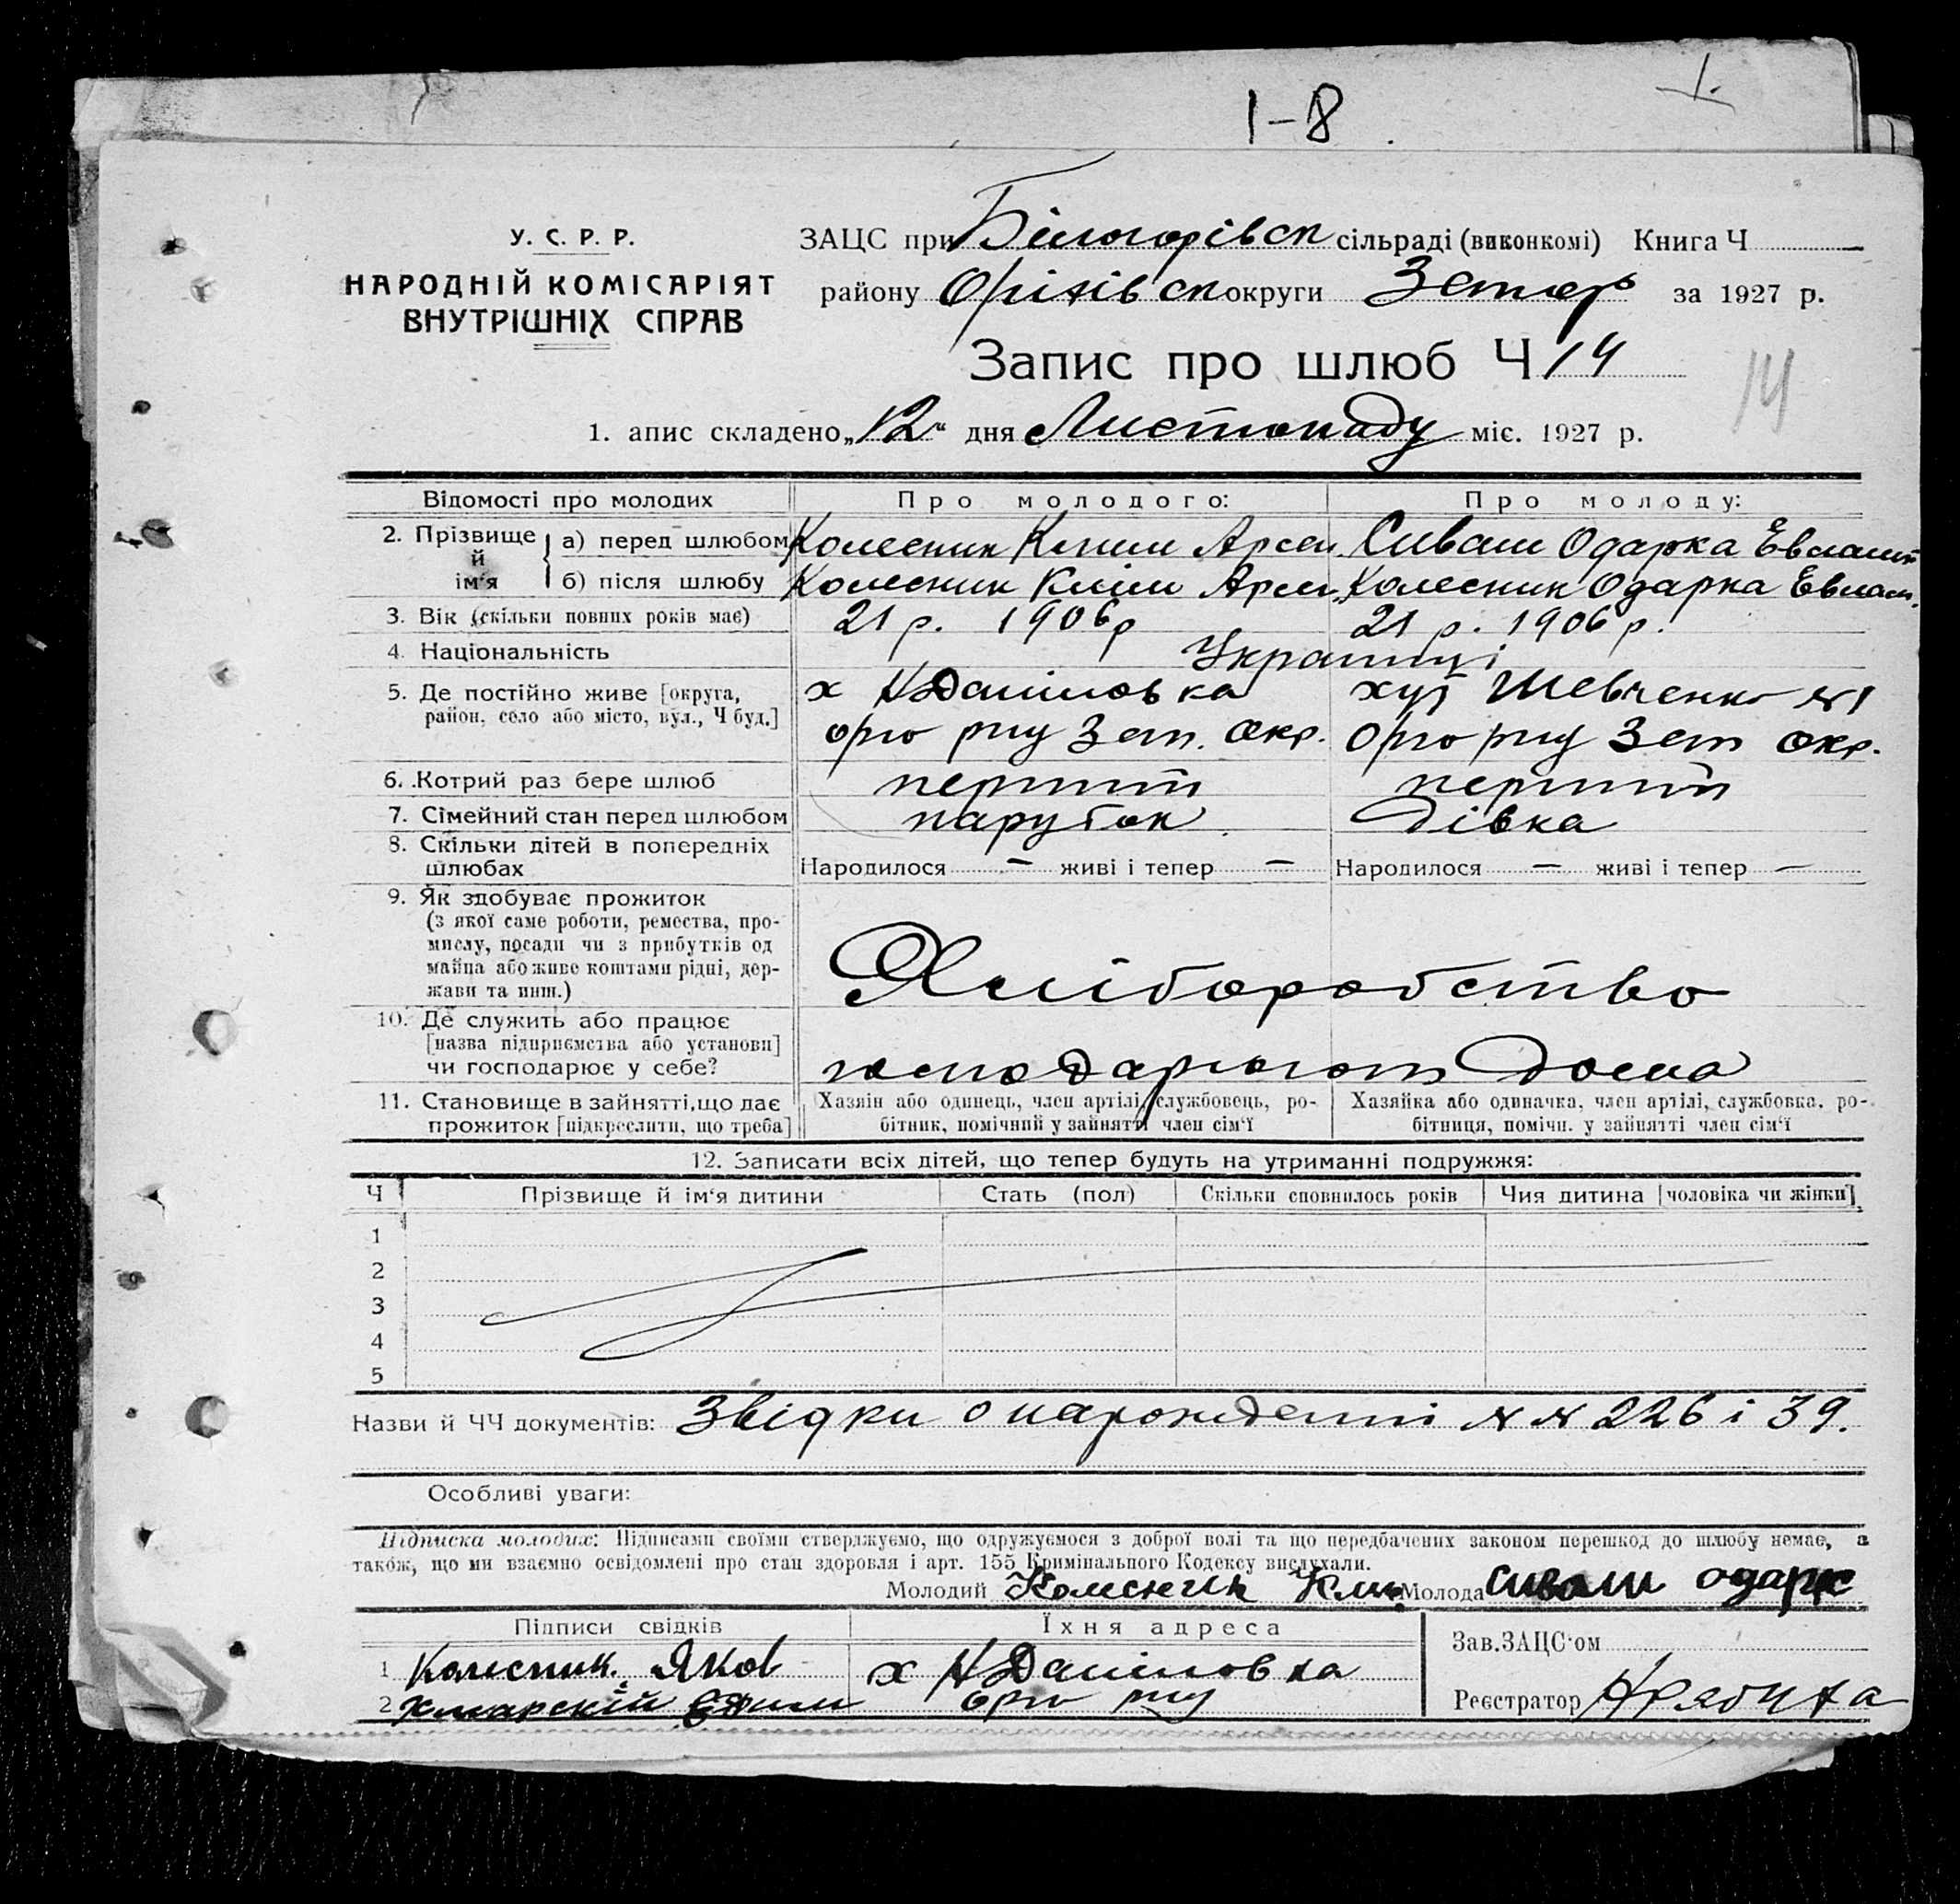 1-8.
1.
У. С. Р. Р.
НАРОДНІЙ КОМІСАРІЯТ
ВНУТРІШНІХ СПРАВ
ЗАЦС при Білогорівск сільраді (виконкомі) Книга Ч
району Оріхівск округи Запор за 1927 р.
Запис про шлюб Ч 14
14
1. апис складено „12“ дня Листопаду міс. 1927 р.
Відомості про молодих Про молодого: Про молоду:
2. Прізвище й ім‘я а) перед шлюбом Колесник Клим Арсен. Сиваш Одарка Евламп
б) після шлюбу Колесник Клим Арсен. Колесник Одарка Евлам.
3. Вік (скільки повних років має) 21 р. 1906 р 21 р. 1906 р.
4. Національність Українці
5. Де постійно живе [округа, х Н Даниловка хут Шевченко №1
район, село або місто, вул., Ч буд.] Зап. Окр. Зап Окр.
6. Котрий раз бере шлюб перший перший
7. Сімейний стан перед шлюбом парубок дівка
8. Скільки дітей в попередніх
шлюбах Народилося — живі і тепер — Народилося — живі і тепер —
9. Як здобуває прожиток
(з якої саме роботи, ремества, про-
мислу, посади чи з прибутків од
майна або живе коштами рідні, дер-
жави та инш.) Хліборобство
10. Де служить або працює
[назва підприємства або установи]
чи господарює у себе? господарюють дома
11. Становище в зайнятті, що дає Хазяїн або одинець, член артілі, службовець, ро- Хазяйка або одиначка, член артілі, службовка, ро-
прожиток [підкреслити, що треба] бітник, помічний у зайнятті член сім‘ї бітниця, помічн. у зайнятті член сім‘ї
12. Записати всіх дітей, що тепер будуть на утриманні подружжя:
Ч Прізвище й ім‘я дитини Стать (пол) Скільки сповнилось років Чия дитина [чоловіка чи жінки]
1
2
3
4
5
Назви й ЧЧ документів: Звідки о нарожденні № № 226 і 39.
Особливі уваги:
Підписка молодих: Підписами своїми стверджуємо, що одружуємося з доброї волі та що передбачених законом перешкод до шлюбу немає, а
також, що ми взаємно освідомлені про стан здоровля і арт. 155 Кримінального Кодексу вислухали.
Молодий Колесник Клим Молода Сиваш одарк
Підписи свідків Їхня адреса
1 Колесник Яков х Н Даниловка
2 Хмарскій Ефим
Зав. ЗАЦС‘ом
Реєстратор